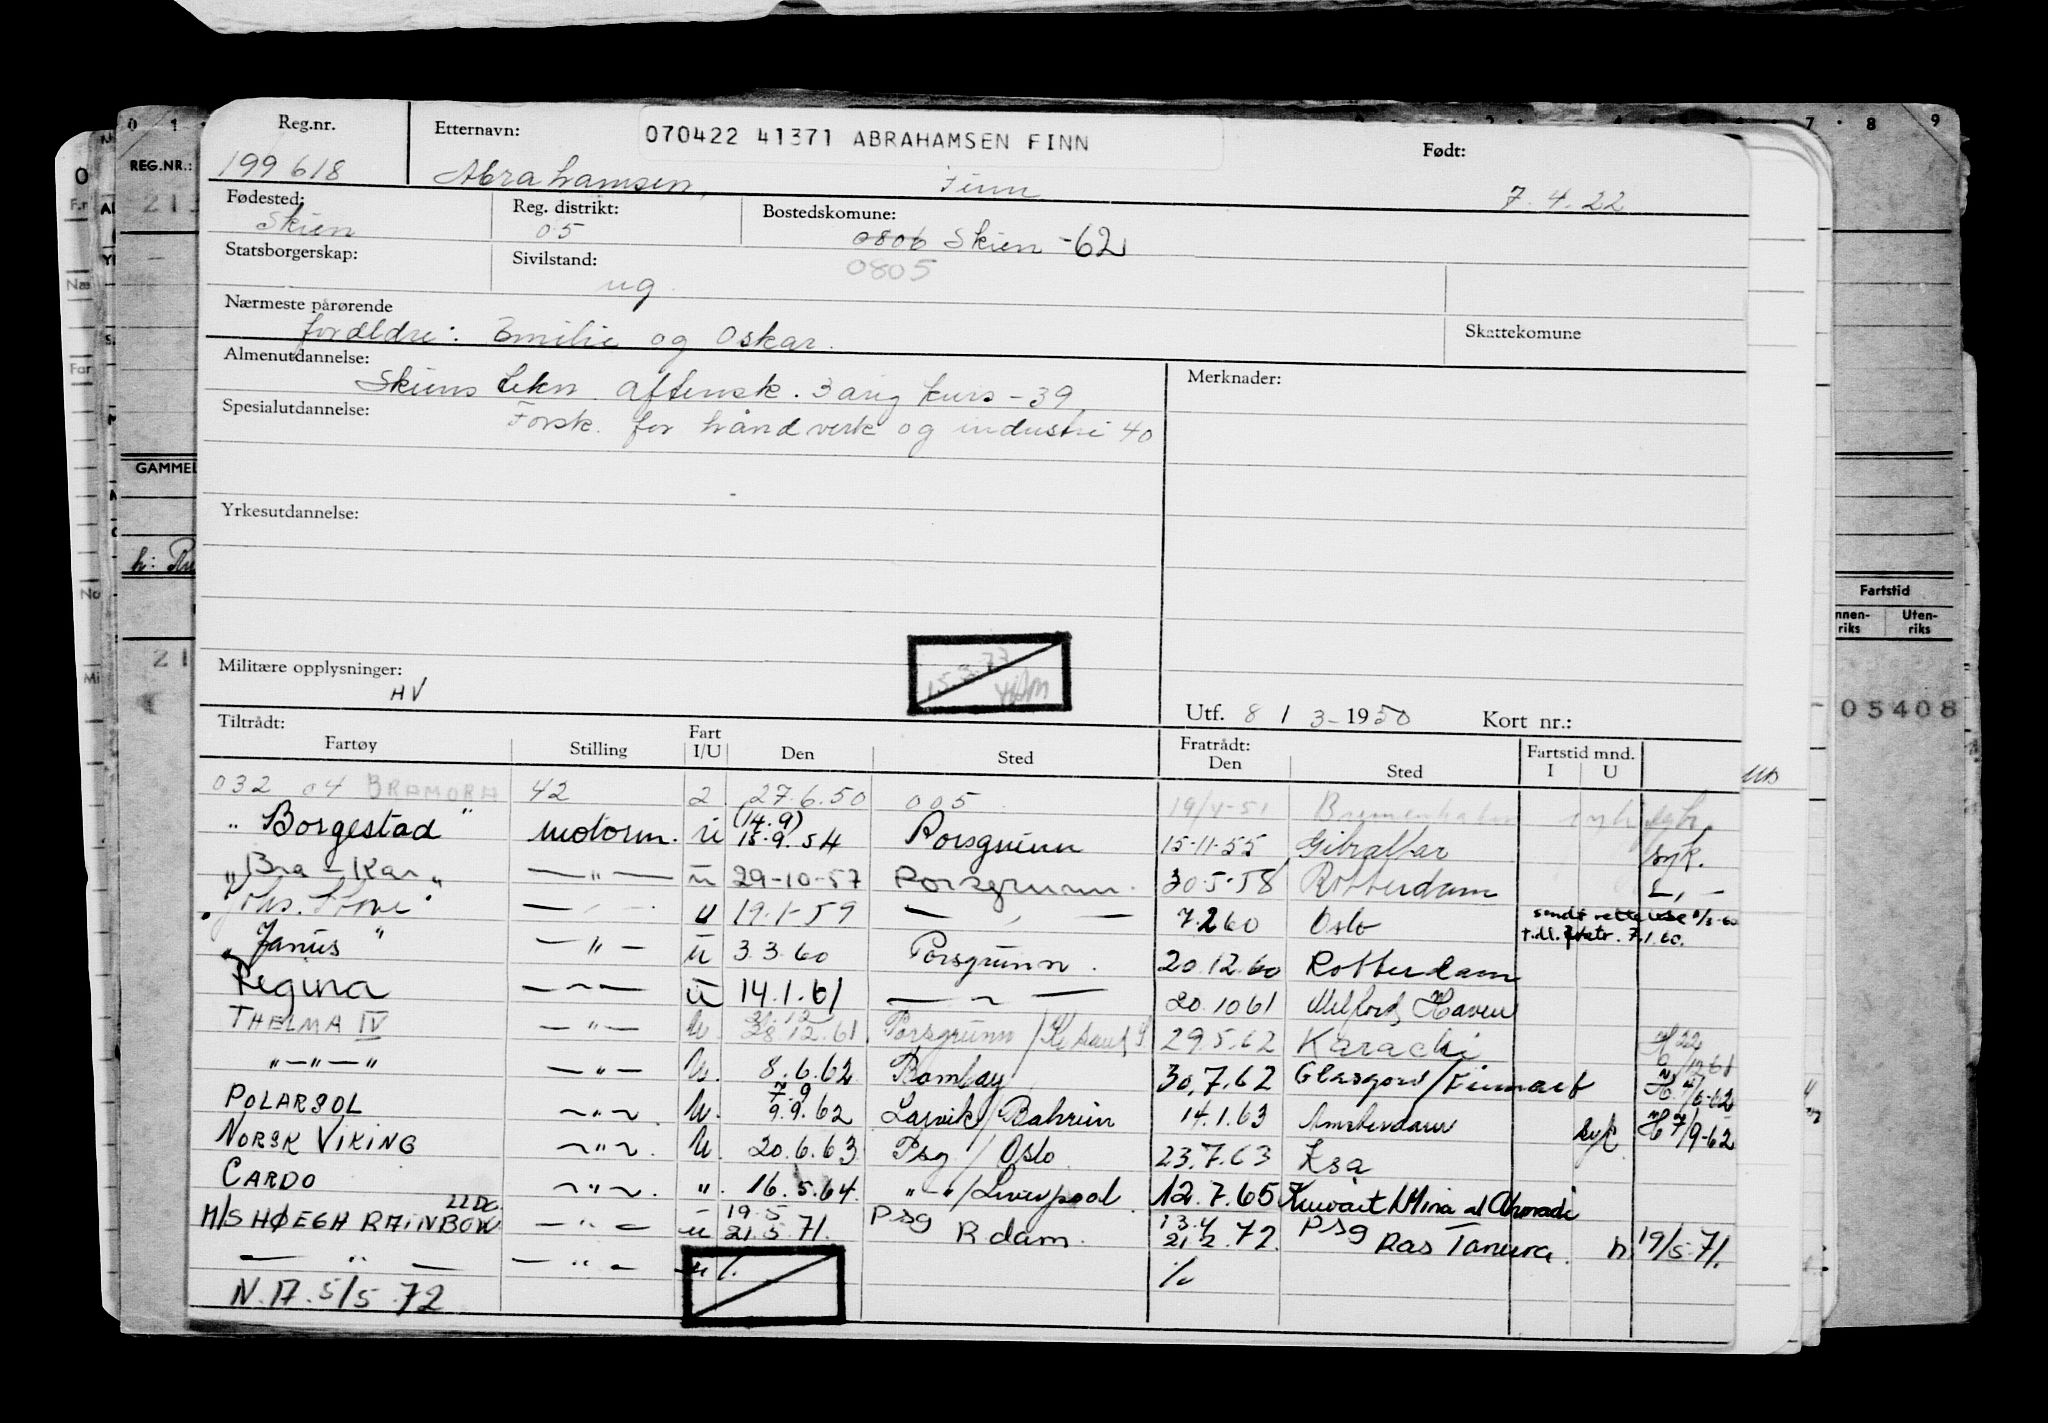 Reg.nr. Etternavn: 070422 41371 ABRAHAMSEN FINN Født:
199618 Abrahamsen, Finn 7.4.22
Fødested: Reg. distrikt: Bostedskomune:
Skien 05 0806 Skien -62
Statsborgerskap: Sivilstand: 0805
ug
Nærmeste pårørende Skattekomune
foreldre: Emilie og Oskar.
Almenutdannelse: Merknader:
Skiens tekn aftensk. 3 årig kurs -39
Spesialutdannelse:
Forsk. for håndverk og industri 40
Yrkesutdannelse:
Militære opplysninger: 15.3.73
HV
Utf. 8 / 3 - 1950 Kort nr.:
Tiltrådt: Fratrådt:
Fartøy Stilling Fart I/U Den Sted Den Sted Fartstid mnd. I U
032 04 BRAMORA 42 2. 27.6.50 005 19/4-51
"Borgestad" motorm. u (14.9) 15.9.54 Porsgrunn 15-11-55 Gibraltar syk.
"Bra-Kar" — " — u 29-10-57 Porsgrunn. 30.5.58 Rotterdam — " —
— " — u 19.1-59 — " — 7.2.60 Oslo sendt rettelse
"Janus" — " — u 3.3.60 Porsgrunn. 20.12.60 Rotterdam t.dl. fratr. 7.1.60.
Regina — " — u 14.1.61 — " — 20.10 61 Milford Haven
THELMA IV — " — u. 28.12.61 Porsgrunn / 29.5.62 Karachi
— " — " — " — " — u. 8.6.62 Bombay 30.7.62 Glasgow / Finnart
POLARSOL — " — u. 7.9 9.9.62 Larvik / Bahrein 14.1.63 Amsterdam syk 7/9-62
NORSK VIKING — " — u. 20.6.63 Psg / Oslo 23.7.63 Ksa
CARDO — " — ". 16.5.64. " — " / Liverpool 12.7.65 Kuwait / Mina al Ahmadi
M/S HØEGH RAINBOW LLDC — " — u 19.5 21.5.71. Psg R dam. 13.4 21.2.72. Psg Ras Tanura. n. 19/5.71.
— " — — " — u %. %
N.17.5/5.72
0 1 7 8 9
REG.NR.:
GAMMEL
Fartstid
Uten-
riks
05408